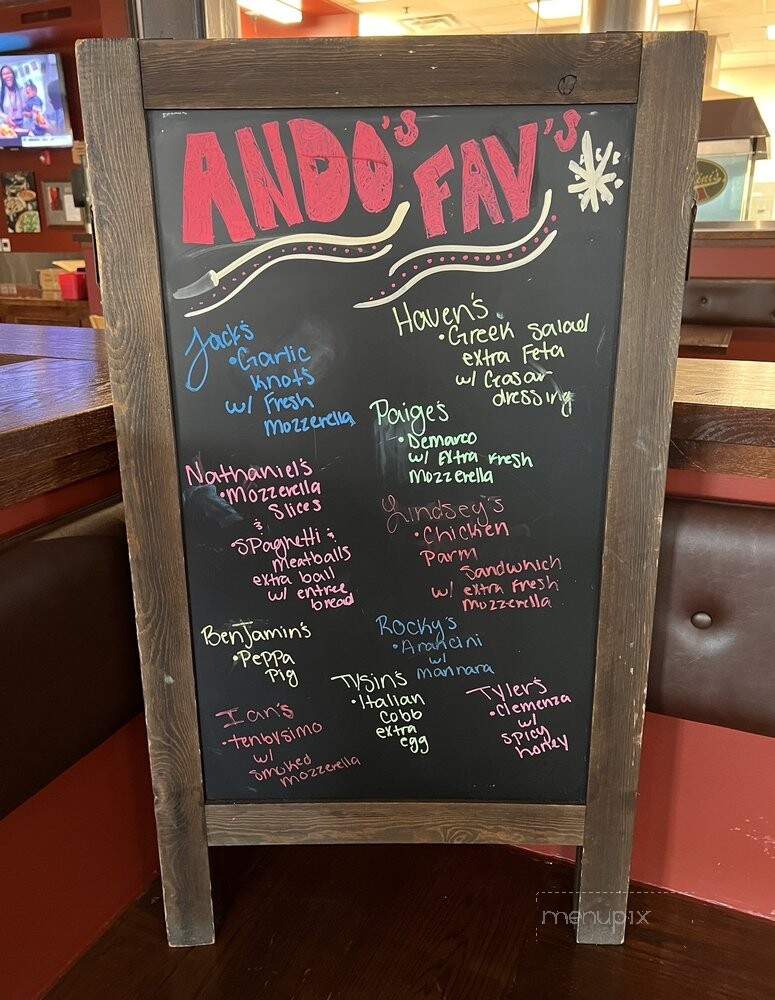 ANDO'S FAV'S
Jack's
•Garlic
Knots
w/ Fresh
Mozzerella
Haven's
•Greek Salad
extra Feta
w/ Ceasar
dressing
Paige's
•Demarco
w/ Extra Fresh
Mozzerella
Nathaniel's
•Mozzerella
Slices
&
•SPaghetti &
meatballs
extra ball
w/ entree
bread
Lindsey's
•Chicken
Parm
Sandwhich
w/ extra Fresh
Mozzerella
Benjamin's
•Peppa
Pig
Rocky's
•Arancini
w/
mannara
Tysin's
•Italian
Cobb
extra
egg
Tyler's
•Clemenza
w/
spicy
honey
Ian's
•tenbysimo
w/
smoked
mozzerella
menupix